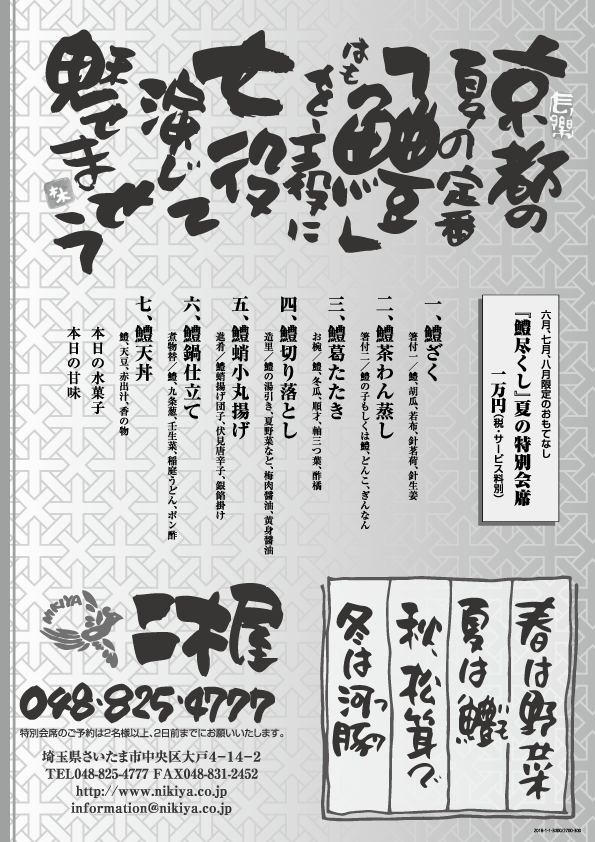 京都の
夏の定番
「鱧尽し」
はも
を主役に
七役
演じて
魅せま
せう
六月、七月、八月限定のおもてなし
『鱧尽くし』夏の特別会席
一万円(税・サービス料別)
一、鱧ざく
箸付一／鱧、胡瓜、若布、針茗荷、針生姜
二、鱧茶わん蒸し
箸付二／鱧の子もしくは鱧、どんこ、ぎんなん
三、鱧葛たたき
お椀／鱧、冬瓜、順才、軸三つ葉、酢橘
四、鱧切り落とし
造里／鱧の湯引き、夏野菜など、梅肉醤油、黄身醤油
五、鱧蛸小丸揚げ
進肴／鱧蛸揚げ団子、伏見唐辛子、銀餡掛け
六、鱧鍋仕立て
煮物替／鱧、九条葱、壬生菜、稲庭うどん、ポン酢
七、鱧天丼
鱧、天豆、赤出汁、香の物
本日の水菓子
本日の甘味
春は野菜
夏は鱧
はも
秋、松茸で
冬は河豚
ふぐ
NIKIYA
二木屋
048・825・4777
特別会席のご予約は2名様以上、2日前までにお願いいたします。
埼玉県さいたま市中央区大戸4－14－2
TEL048-825-4777 FAX048-831-2452
http://www.nikiya.co.jp
information@nikiya.co.jp